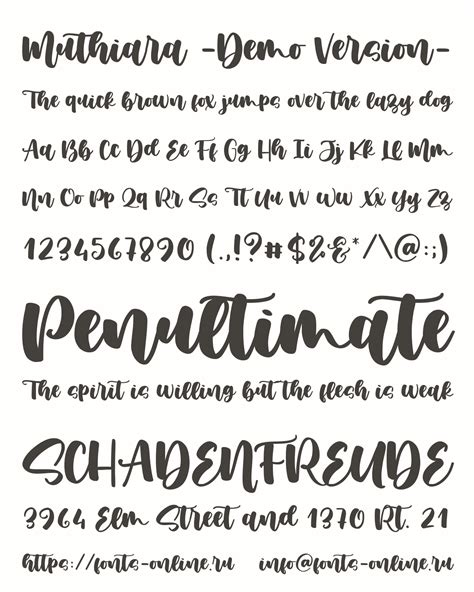 Muthiara -Demo Version-
The quick brown fox jumps over the lazy dog
Aa Bb Cc Dd Ee Ff Gg Hh Ii Jj Kk Ll Mm
Nn Oo Pp Qq Rr Ss Tt Uu Vv Ww Xx Yy Zz
1234567890 (.,!?#$%&*/\@:;)
Penultimate
The spirit is willing but the flesh is weak
SCHADENFREUDE
3964 Elm Street and 1370 Rt. 21
https://fonts-online.ru info@fonts-online.ru